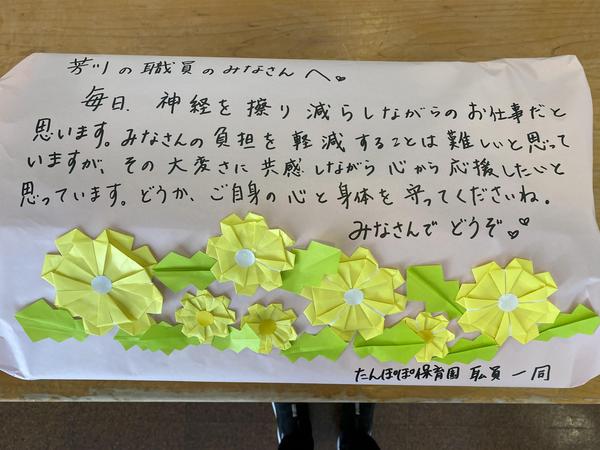 芳川の職員のみなさんへ♥
毎日、神経を擦り減らしながらのお仕事だと
思います。みなさんの負担を軽減することは難しいと思って
いますが、その大変さに共感しながら心から応援したいと
思っています。どうか、ご自身の心と身体を守ってくださいね。
みなさんでどうぞ♡♡
たんぽぽ保育園 職員一同